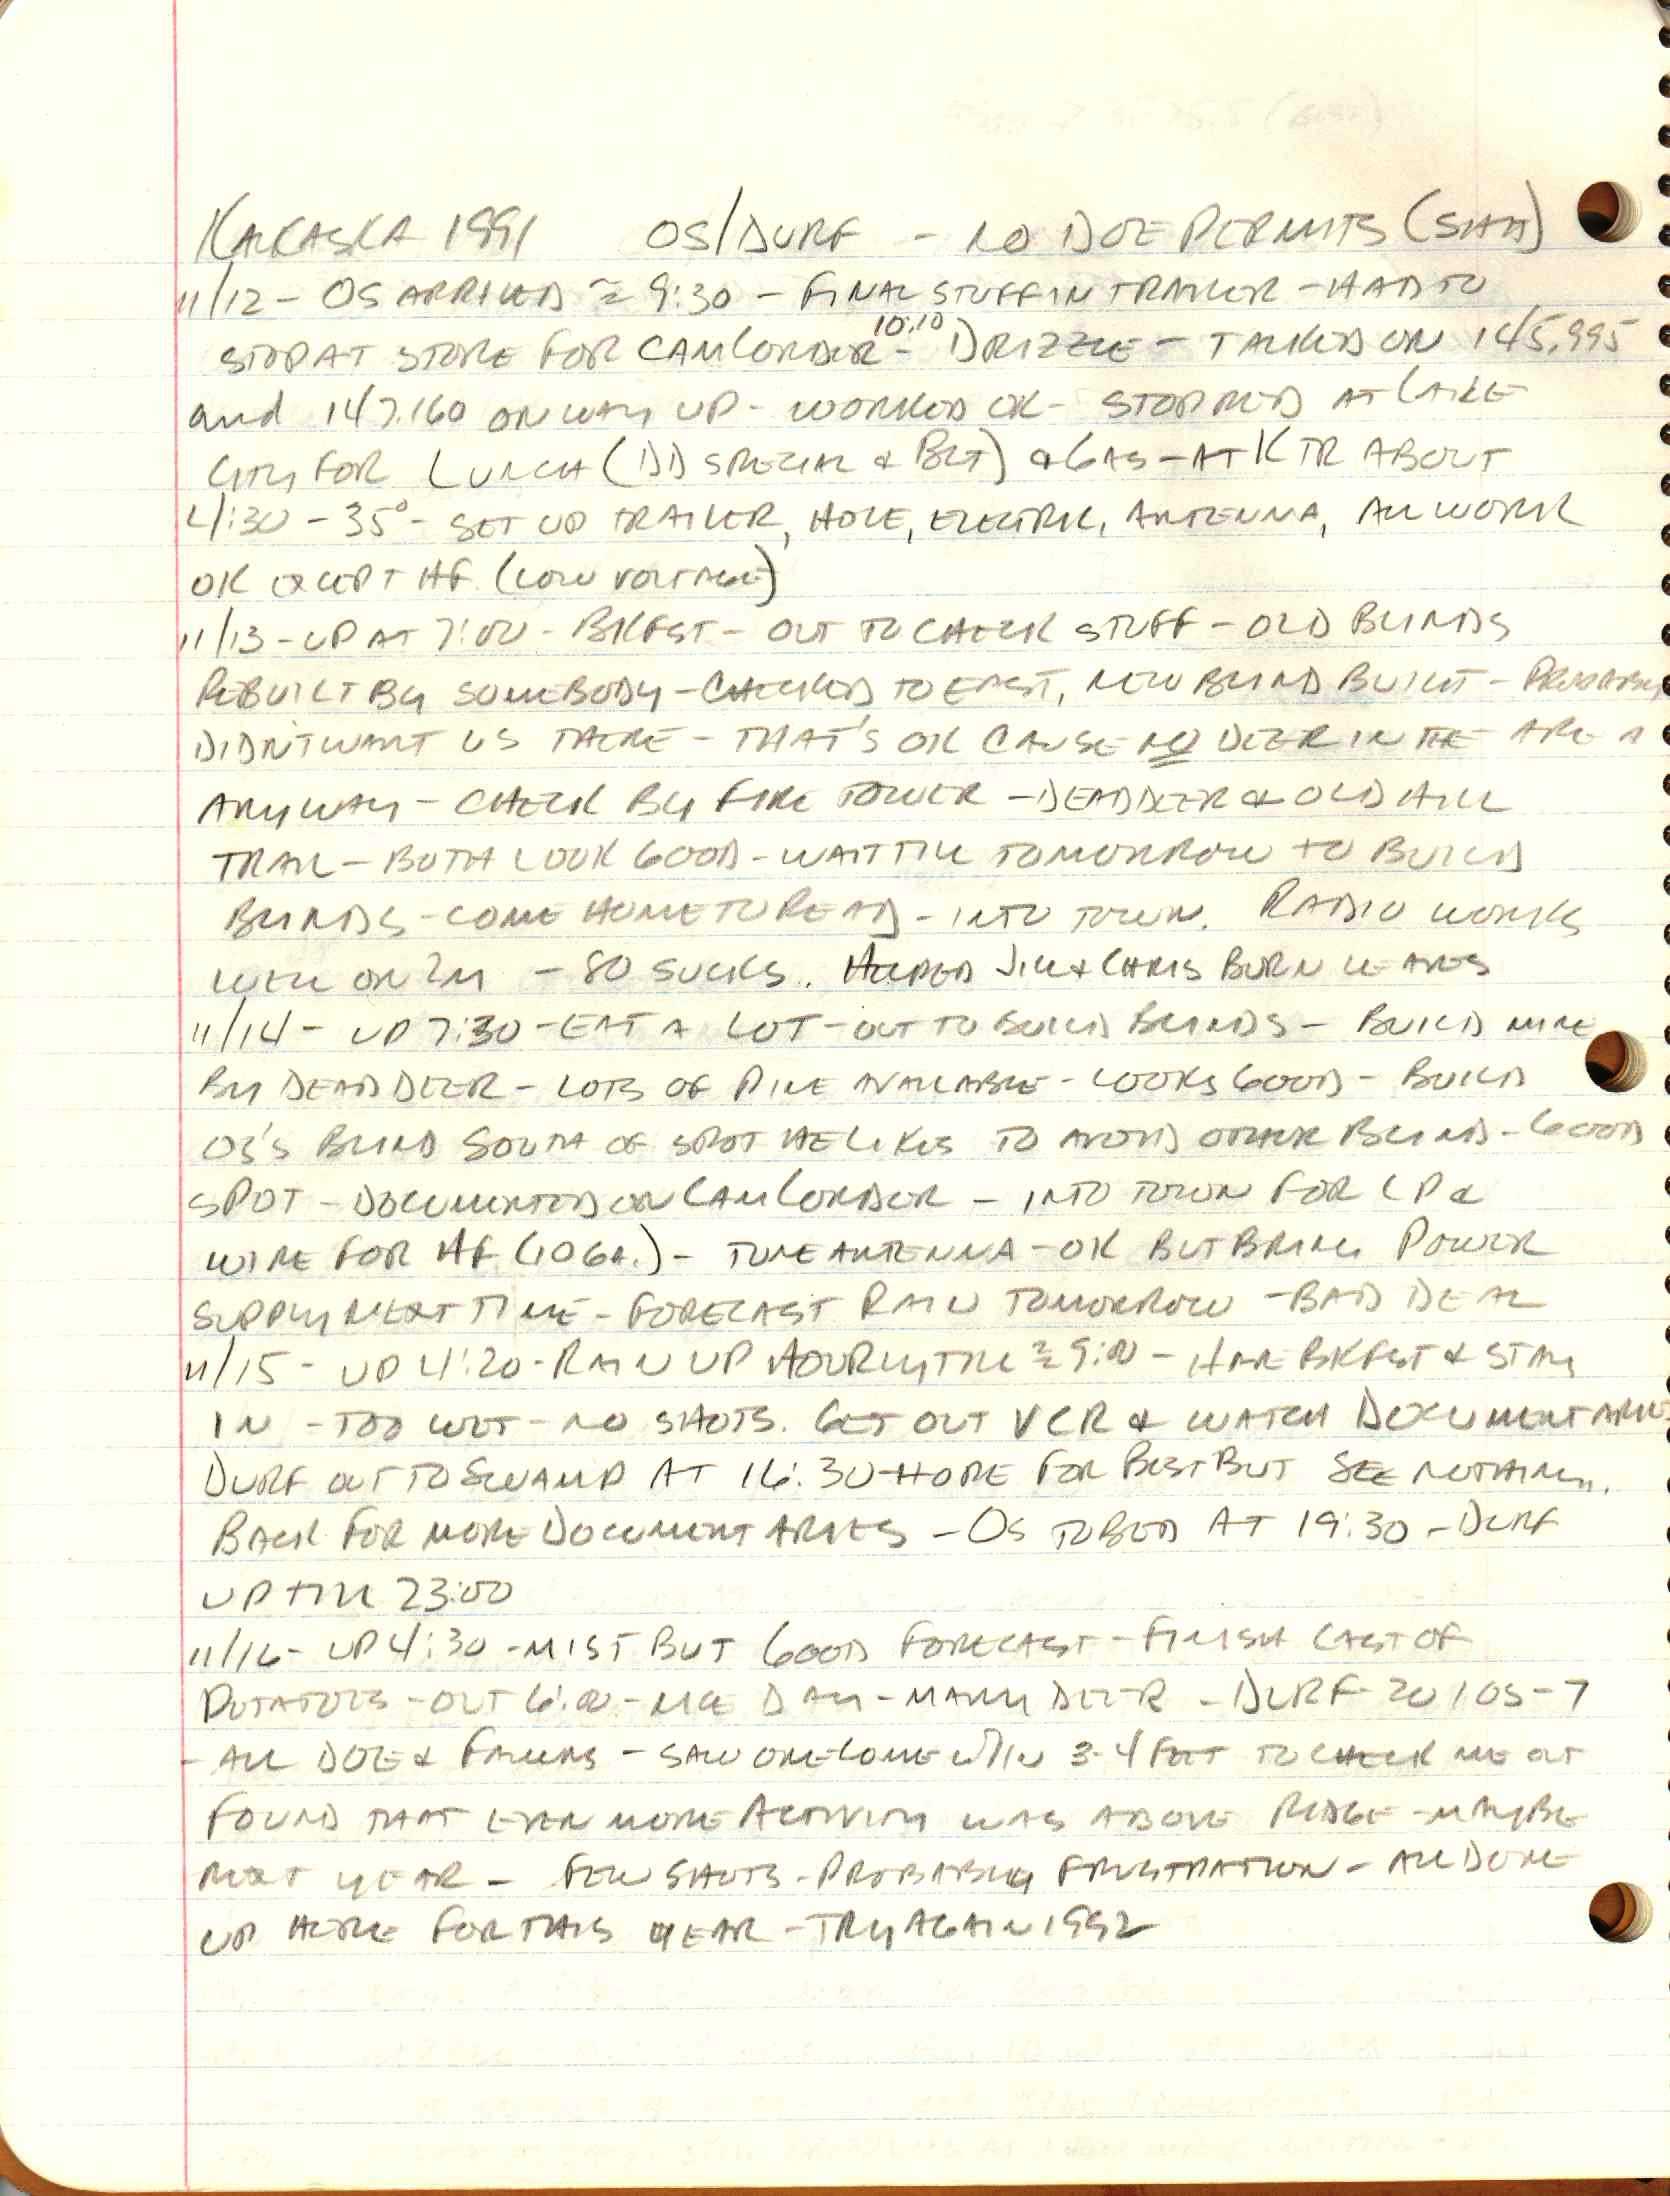 KALKASKA 1991 OS/DURF - NO DOE PERMITS
11/12 - OS ARRIVED ≈ 9:30 - FINAL STUFF IN TRAILER - HAD TO
STOP AT STORE FOR CAMCORDER - 10:10 DRIZZLE - TALKED ON 145.995
and 147.160 ON WAY UP - WORKED OK - STOPPED AT LAKE
CITY FOR LUNCH (DD SPECIAL & BLT) & GAS - AT KTR ABOUT
4:30 - 35° - SET UP TRAILER, HOLE, ELECTRIC, ANTENNA, ALL WORK
OK EXCEPT HF (LOW VOLTAGE)
11/13 - UP AT 7:00 - BKFST - OUT TO CHECK STUFF - OLD BLINDS
REBUILT BY SOMEBODY - CHECKED TO EAST, NEW BLIND BUILT - PROBABLY
DIDN'T WANT US THERE - THAT'S OK CAUSE NO DEER IN THE AREA
ANYWAY - CHECK BY FIRE TOWER - DEAD DEER & OLD HILL
TRAIL - BOTH LOOK GOOD - WAIT TILL TOMORROW TO BUILD
BLINDS - COME HOME TO READ - INTO TOWN. RADIO WORKS
WELL ON 2M - 80 SUCKS. HELPED JIM & CHRIS BURN LEAVES
11/14 - UP 7:30 - EAT A LOT - OUT TO BUILD BLINDS - BUILD MINE
BY DEAD DEER - LOTS OF PINE AVAILABLE - LOOKS GOOD - BUILD
OS'S BLIND SOUTH OF SPOT HE LIKES TO AVOID OTHER BLIND - GOOD
SPOT - DOCUMENTED ON CAMCORDER - INTO TOWN FOR LP &
WIRE FOR HF (10GA.) - TUNE ANTENNA - OK BUT BRING POWER
SUPPLY NEXT TIME - FORECAST RAIN TOMORROW - BAD DEAL
11/15 - UP 4:20 - RAIN UP HOURLY TILL ≈ 9:00 - HAVE BKFST & STAY
IN - TOO WET - NO SHOTS. GET OUT VCR & WATCH DOCUMENTARIES
DURF OUT TO SWAMP AT 16:30 - HOPE FOR BEST BUT SEE NOTHING.
BACK FOR MORE DOCUMENTARIES - OS TO BED AT 19:30 - DURF
UP TILL 23:00
11/16 - UP 4:30 - MIST BUT GOOD FORECAST - FINISH LAST OF
POTATOES - OUT 6:00 - NICE DAY - MANY DEER - DURF 20 / OS - 7
- ALL DOE & FAWNS - SAW ONE COME W/IN 3-4 FEET TO CHECK ME OUT
FOUND THAT EVEN MORE ACTIVITY WAS ABOVE RIDGE - MAYBE
NEXT YEAR - FEW SHOTS - PROBABLY FRUSTRATION - ALL DONE
UP HERE FOR THIS YEAR - TRY AGAIN 1992